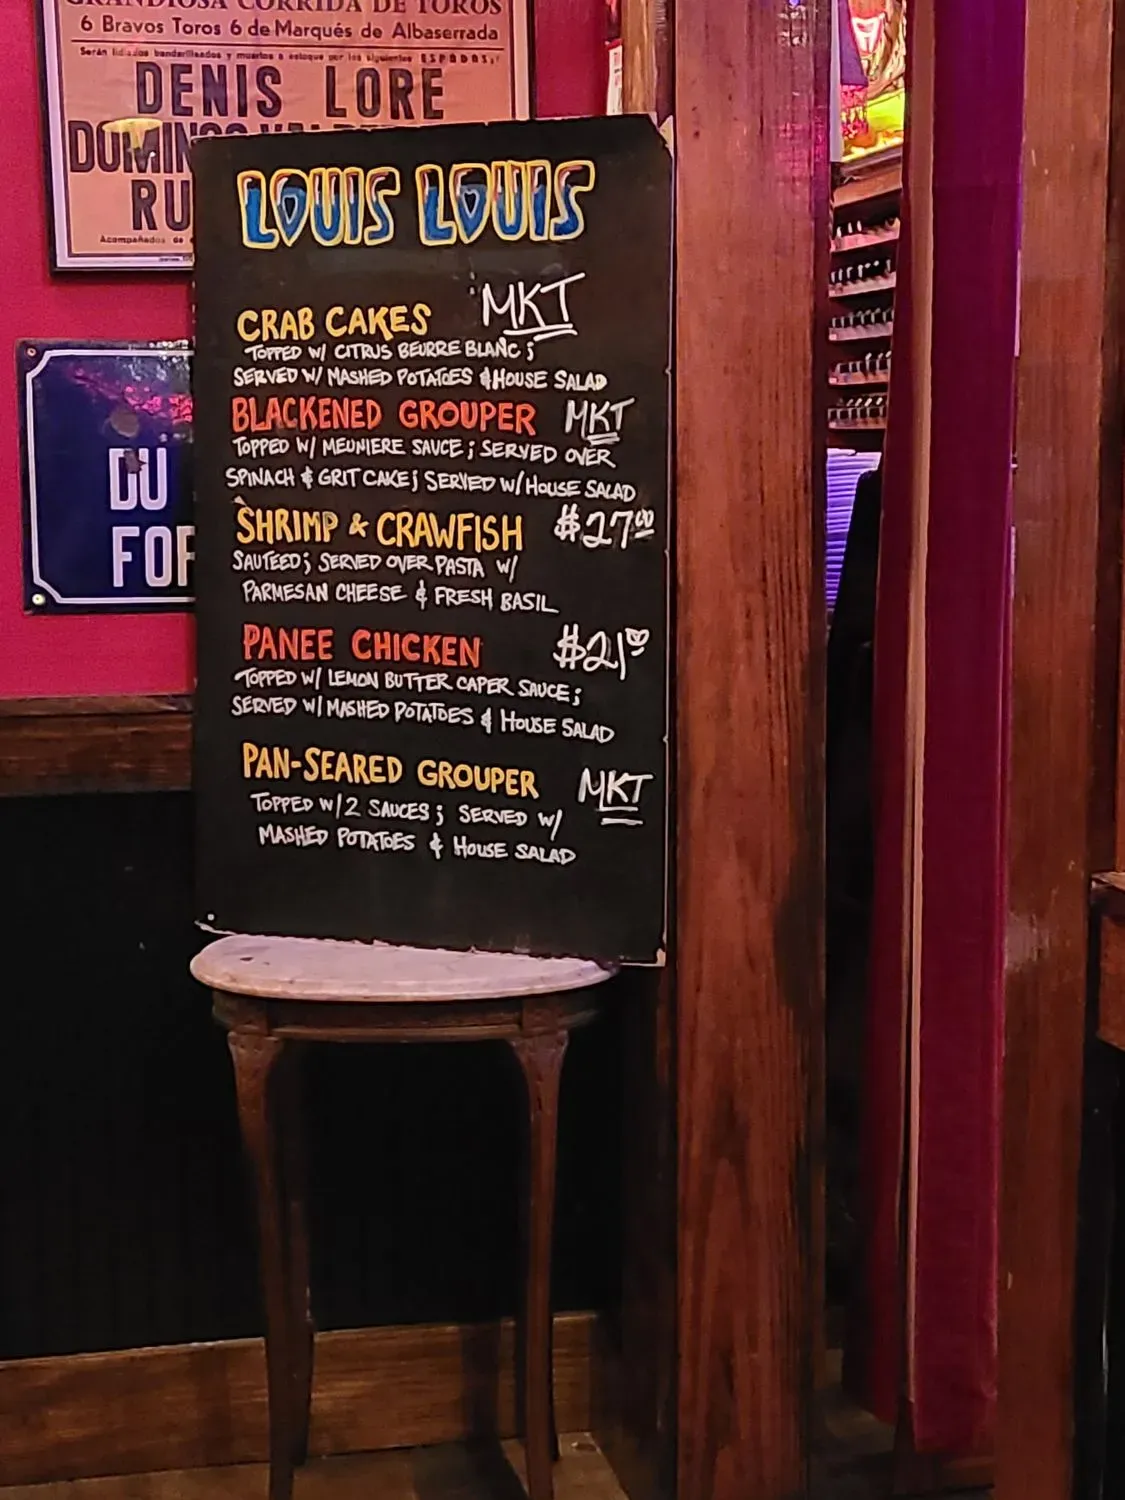 GRANDIOSA CORRIDA DE TOROS
6 Bravos Toros 6 de Marqués de Albaserrada
Serán lidiados banderilleados y muertos a estoque por los siguientes ESPADAS:
DENIS LORE
DOMIN
RU
Acompañados de
DU
FOR
LOUIS LOUIS
CRAB CAKES MKT
TOPPED W/ CITRUS BEURRE BLANC;
SERVED W/ MASHED POTATOES & HOUSE SALAD
BLACKENED GROUPER MKT
TOPPED W/ MEUNIERE SAUCE; SERVED OVER
SPINACH & GRIT CAKE; SERVED W/ HOUSE SALAD
SHRIMP & CRAWFISH $27.00
SAUTEED; SERVED OVER PASTA W/
PARMESAN CHEESE & FRESH BASIL
PANEE CHICKEN $21.00
TOPPED W/ LEMON BUTTER CAPER SAUCE;
SERVED W/ MASHED POTATOES & HOUSE SALAD
PAN-SEARED GROUPER MKT
TOPPED W/ 2 SAUCES; SERVED W/
MASHED POTATOES & HOUSE SALAD